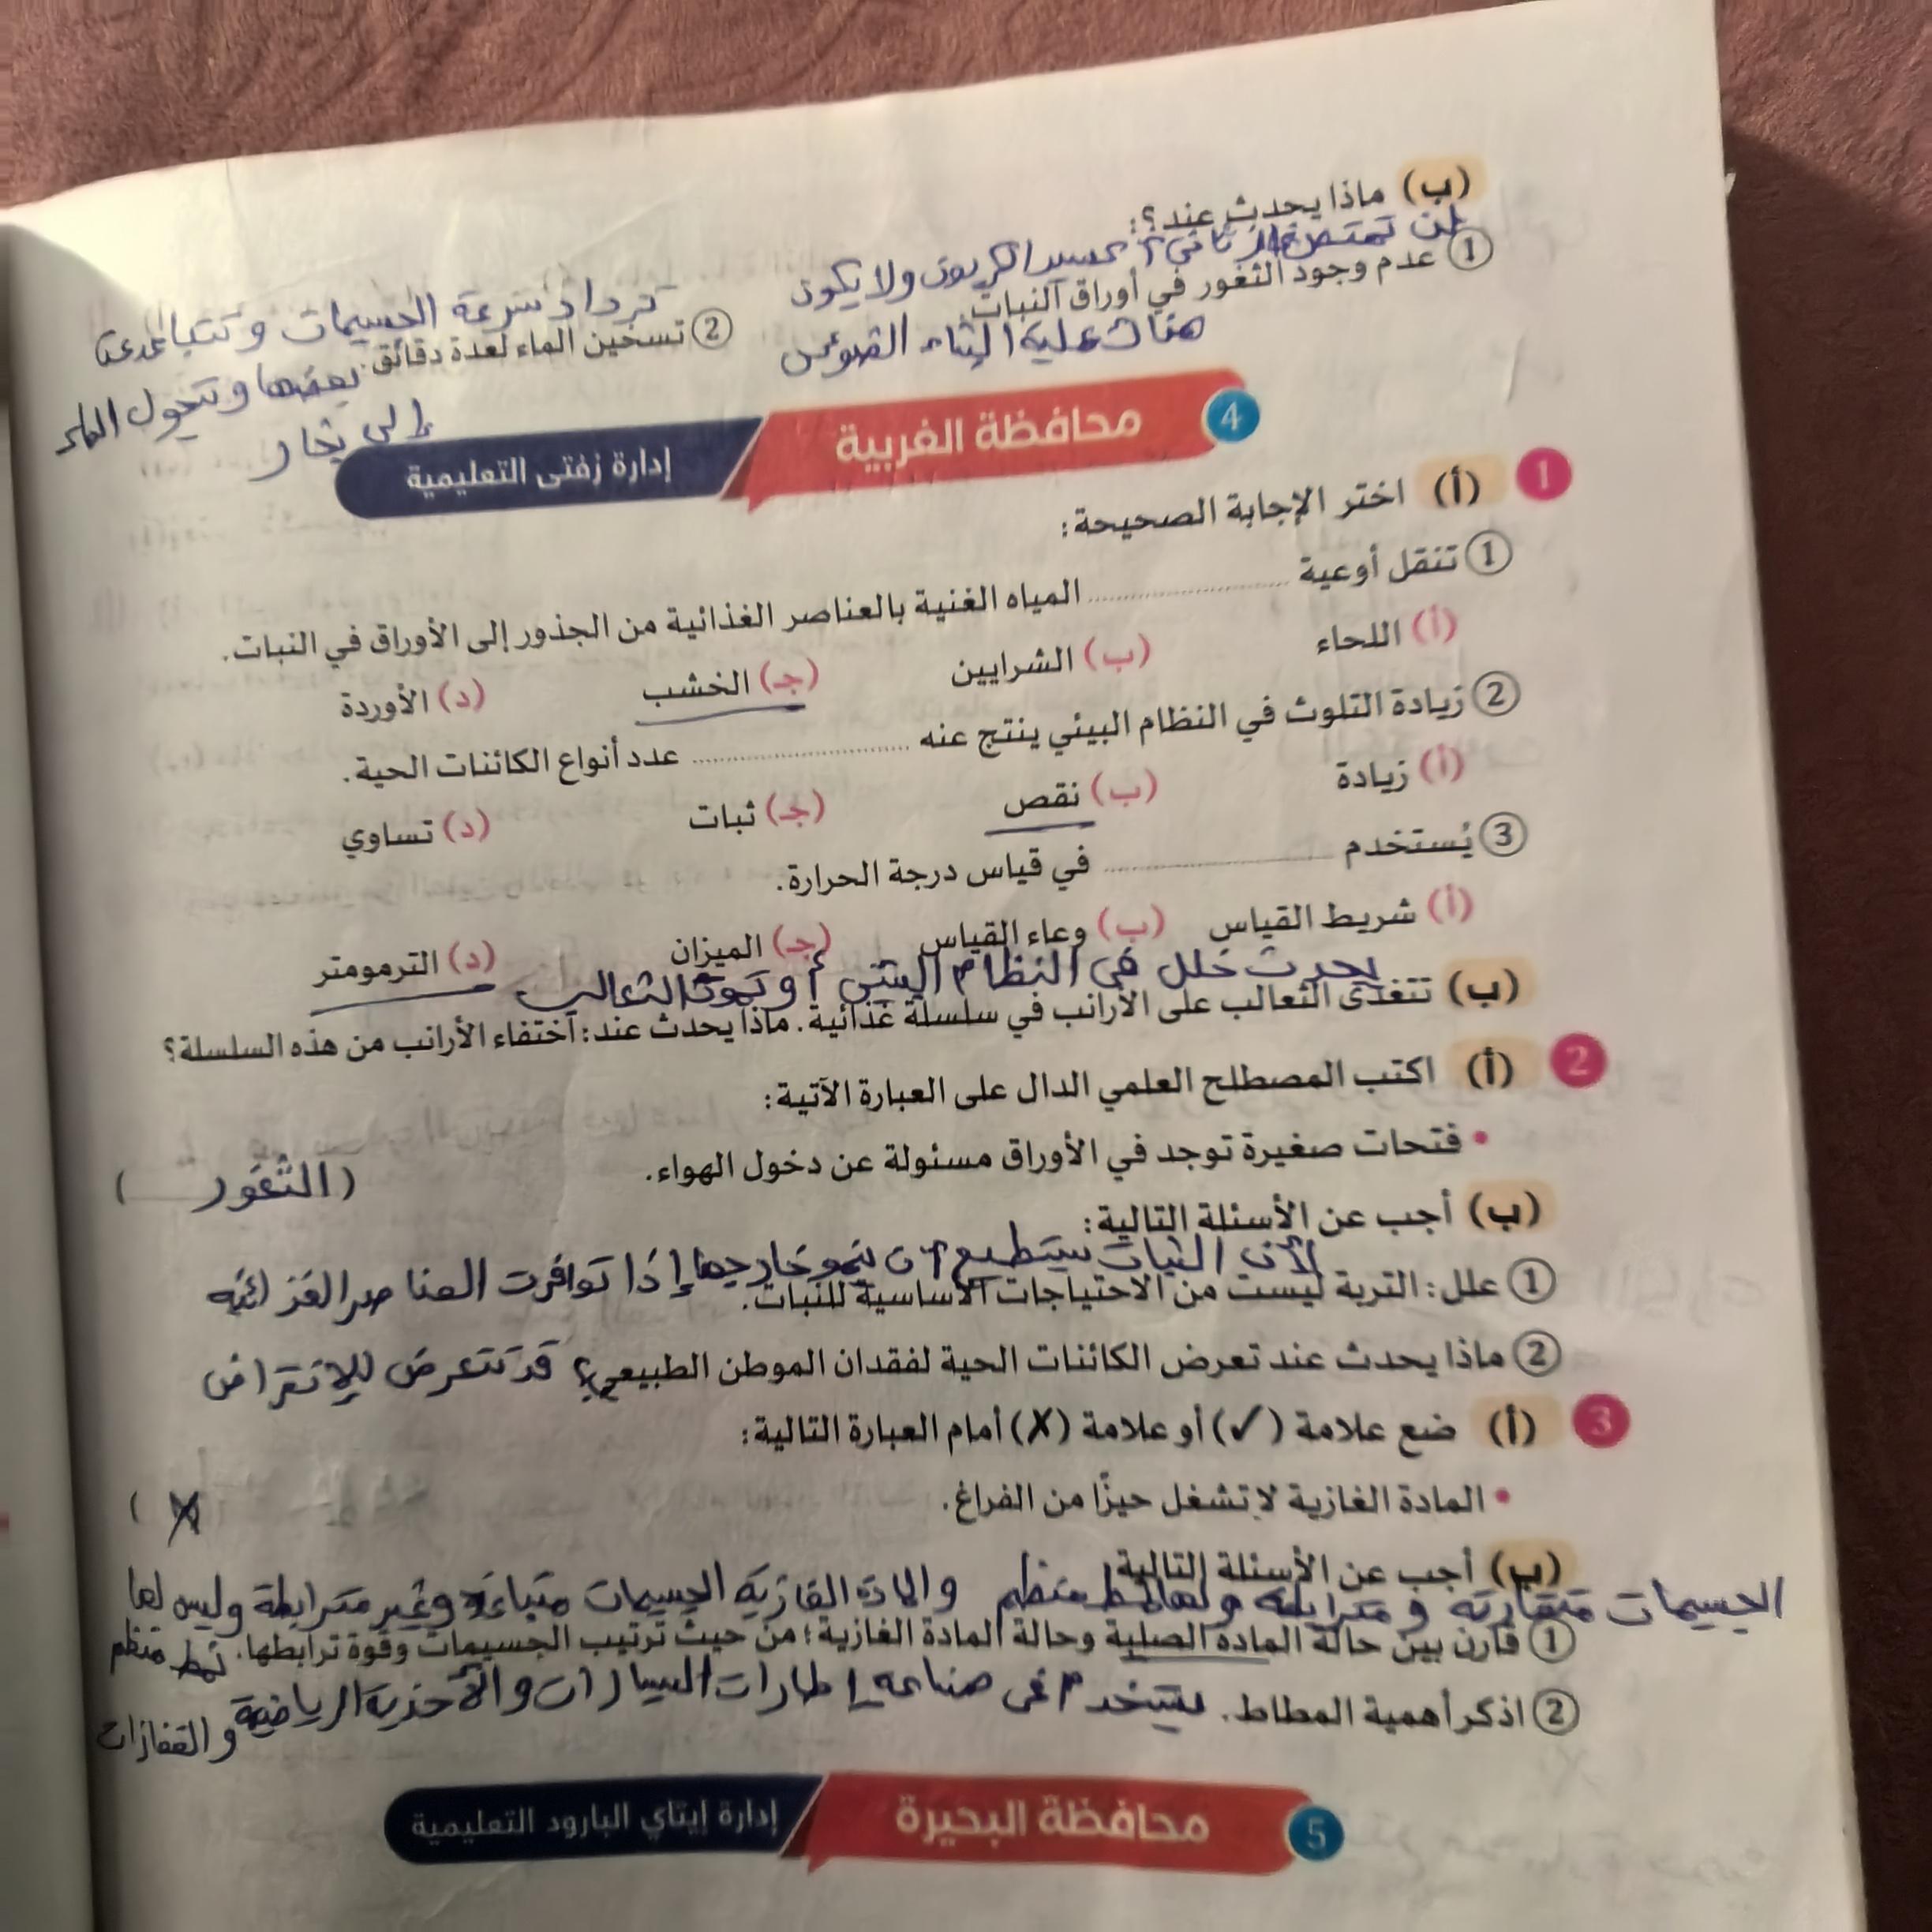 (ب) ماذا يحدث عند؟:
لن تمتص ثاني أكسيد الكربون ولا يكون
① عدم وجود الثغور في أوراق النبات.
هناك عملية البناء الضوئي
تزداد سرعة الجسيمات وتتباعد عن
② تسخين الماء لعدة دقائق.
بعضها وتتحول الماء
إلى بخار
4 محافظة الغربية
إدارة زفتى التعليمية
1 (أ) اختر الإجابة الصحيحة:
① تنقل أوعية .................... المياه الغنية بالعناصر الغذائية من الجذور إلى الأوراق في النبات.
(أ) اللحاء (ب) الشرايين (جـ) الخشب (د) الأوردة
② زيادة التلوث في النظام البيئي ينتج عنه .................... عدد أنواع الكائنات الحية.
(أ) زيادة (ب) نقص (جـ) ثبات (د) تساوي
③ يُستخدم .................... في قياس درجة الحرارة.
(أ) شريط القياس (ب) وعاء القياس (جـ) الميزان (د) الترمومتر
يحدث خلل في النظام البيئي أو تموت الثعالب
(ب) تتغذى الثعالب على الأرانب في سلسلة غذائية. ماذا يحدث عند: اختفاء الأرانب من هذه السلسلة؟
2 (أ) اكتب المصطلح العلمي الدال على العبارة الآتية:
• فتحات صغيرة توجد في الأوراق مسئولة عن دخول الهواء. (الثغور )
(ب) أجب عن الأسئلة التالية:
لأن النبات يستطيع أن ينمو خارجها إذا توافرت العناصر الغذائيه
① علل: التربة ليست من الاحتياجات الأساسية للنبات.
② ماذا يحدث عند تعرض الكائنات الحية لفقدان الموطن الطبيعي؟ قد تتعرض للإنقراض
3 (أ) ضع علامة (✓) أو علامة (✗) أمام العبارة التالية:
• المادة الغازية لا تشغل حيزًا من الفراغ. ✗ )
(ب) أجب عن الأسئلة التالية:
الجسيمات متقاربه و مترابطه ولها نمط منظم والمادة الغازيه الجسيمات متباعدة وغير مترابطة وليس لها
① قارن بين حالة المادة الصلبة وحالة المادة الغازية؛ من حيث ترتيب الجسيمات وقوة ترابطها. نمط منظم
② اذكر أهمية المطاط. يستخدم في صناعه إطارات السيارات والأحذية الرياضية
والقفازات
5 محافظة البحيرة
إدارة إيتاي البارود التعليمية